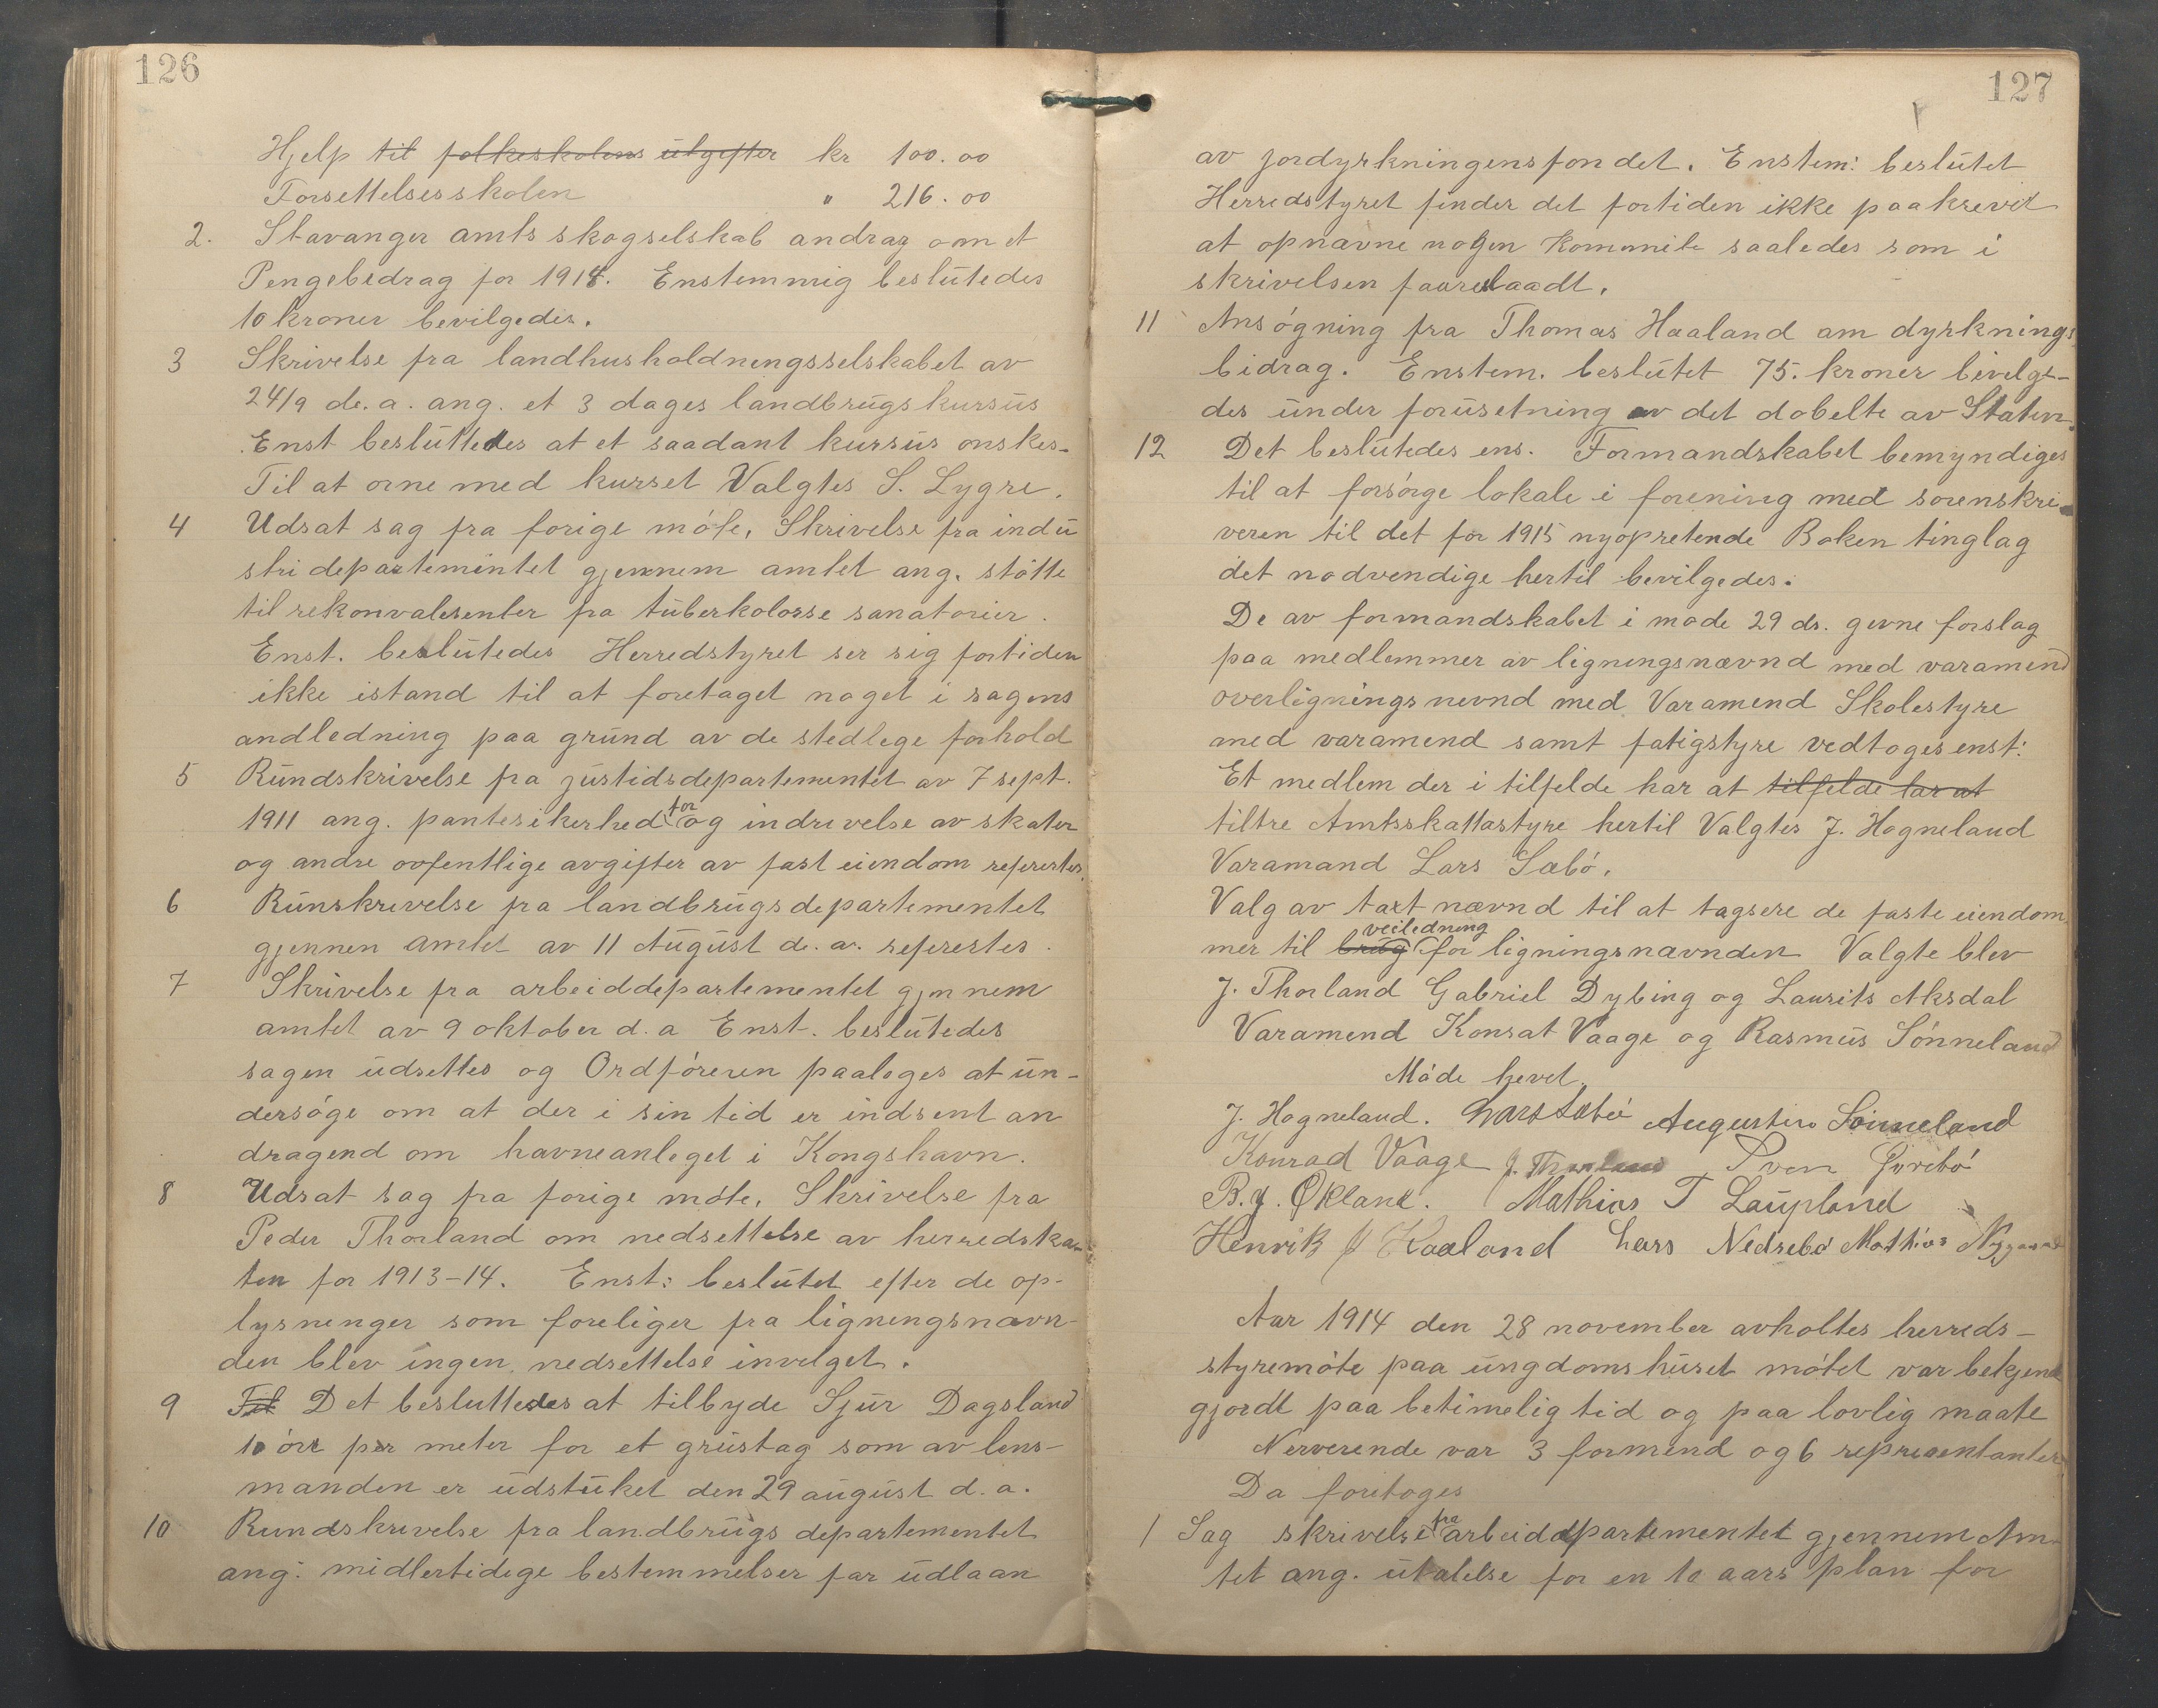 126
Hjelp til folkeskolens utgifter kr 100.00
Forsettelsesskolen " 216.00
2. Stavanger amts skogselskab andrag om et
Pengebedrag for 1914. Enstemmig beslutedes
10 kroner bevilgedes.
3 Skrivelse fra landhusholdningsselskabet av
24/9 de. a. ang. et 3 dages landbrugskursus
Enst besluttedes at et saadant kursus onskes.
Til at orne med kurset Valgtes S. Lygre.
4 Udsat sag fra forige møte, Skrivelse fra indu
stridepartemintet gjennem amtet ang. støtte
til rekonvalesenter fra tuberkolosse sanatorier.
Enst. beslutedes Herredstyret ser sig fortiden
ikke istand til at foretaget noget i sagens
andledning paa grund av de stedlege forhold
5 Rundskrivelse fra justidsdepartementet av 7 sept.
1911 ang. pantesikerhed for og indrivelse av skater
og andre offentlige avgifter av fast eiendom refererte
6 Runskrevelse fra landbrugsdepartementet
gjennen amtet av 11 August de. a. referertes.
7 Skrivelse fra arbeiddepartementet gjennem
amtet av 9 oktober d. a Enst. beslutedes
sagen udsettes og Ordføreren paaleges at un-
dersøge om at der i sin tid er indsent an
dragend om havneanleget i Kongshavn.
8 Udsat sag fra forige møte, Skrivelse fra
Peder Thorland om nedsettelse av herredska
ten for 1913-14. Enst: beslutet efter de op-
lysnenger som foreliger fra ligningsnævn-
den blev ingen nedsettelse invelget.
9 Fil Det besluttedes at tilbyde Sjur Dagsland
10 øre per meter for et grustag som av lens-
manden er udstuket den 29 august d. a.
10 Rundskrevelse fra landbrugs departementet
ang: midlertidege bestemmelser for udlaan
127
av jordyrkningensfondet. Enstem: beslutet
Herredstyret finder det fortiden ikke paakrevet
at opnævne nogen Kommite saaledes som i
skrivelsen faareslaadt.
11 Ansøgning fra Thomas Haaland om dyrknings
bidrag. Enstem. beslutet 75. kroner bivelge-
des under forusetning av det dobelte av Staten.
12 Det beslutedes ens. Formandskabet bemyndiges
til at forsørge lokale i forening med sorenskri-
veren til det for 1915 nyopretende Boken tinglag
det nodvendige hertil bevilgedes.
De av formandskabet i mode 29 ds. gevne forslag
paa medlemmer av ligningsnævnd med varamend
overligningsnevnd med Varamend Skolestyre
med varamend samt fatigstyre vedtoges enst:
Et medlem der i tilfelde har at tilfelde lar at
tiltre Amtsskattastyre hertil Valgtes J. Hogneland
Varamand Lars Sæbø.
Valg av taxt nævnd til at tagsere de faste eiendom
mer til brug veiledning for ligningsnævnden Valgte blev
J. Thorland Gabriel Dybing og Laurits Aksdal
Varamend Konrat Vaage og Rasmus Sønneland
Møde hevet.
J. Hogneland. Lars Sæbø Augustin Sønneland
Konrad Vaage J. Thorland Sven Gurebø
B. J. Økland. Mathias T Laupland
Henrik J Haaland Lars Nedrebø Mathias Nygaard
Aar 1914 den 28 november avholtes herreds-
styremøte paa ungdomshuset møtet var bekjend
gjordt paa betimelig tid og paa lovlig maate
Nerverende var 3 formend og 6 representanter
Da foretoges
1 Sag skrivelse fra arbeiddpartementet gjennem Am-
tet ang. utalelse for en 10 aars plan for